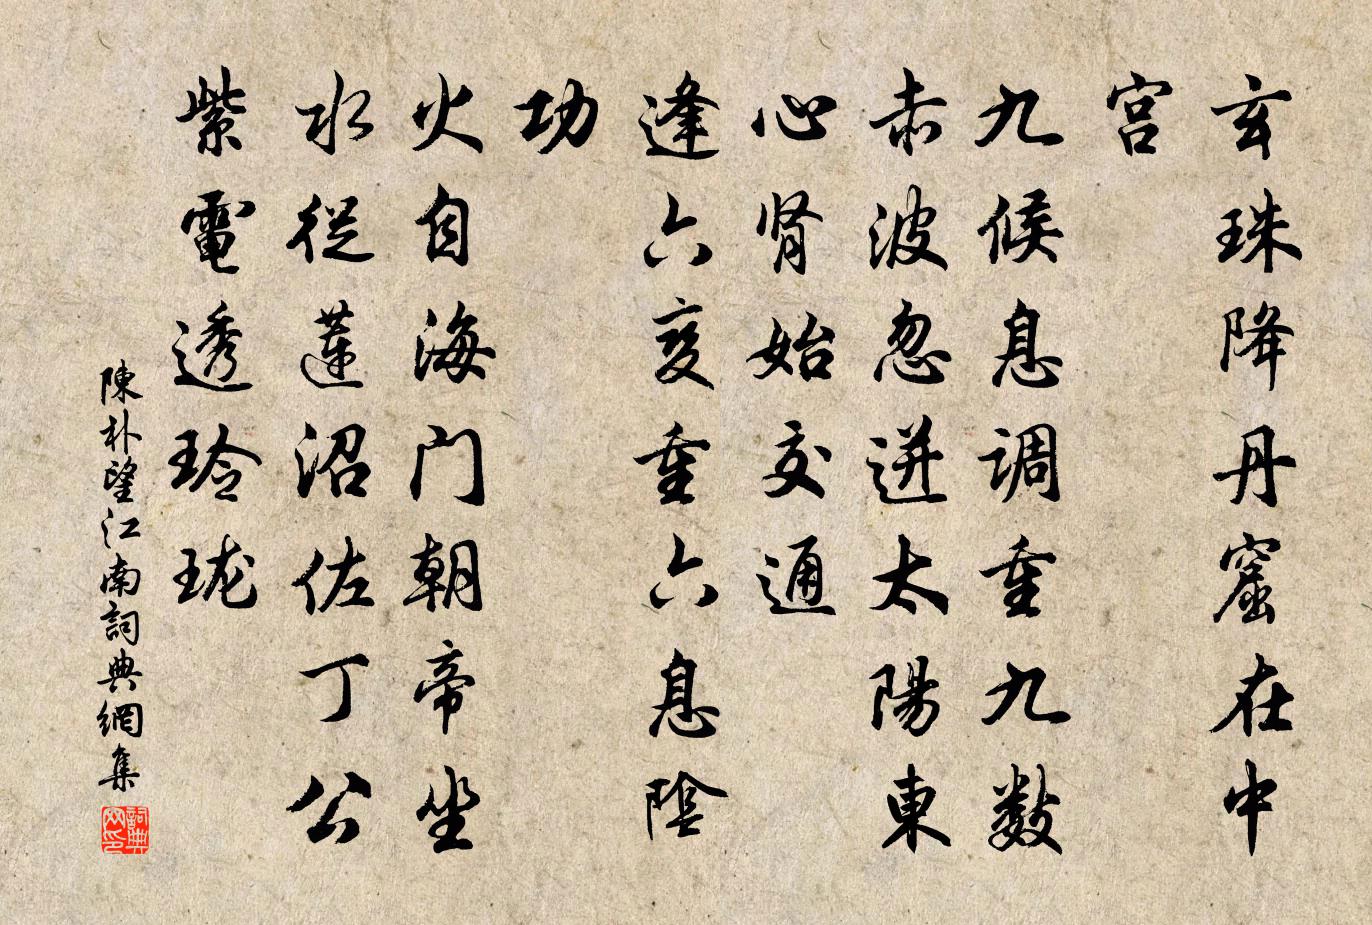 玄珠降丹窟在中
宫
九候息调重九数
赤波忽迸太陽東
心肾始交通
逢六变重六息陰
功
火自海门朝帝坐
水従蓮沼佐丁公
紫電透玲珑
陳朴望江南詞典網集
詞典
网印